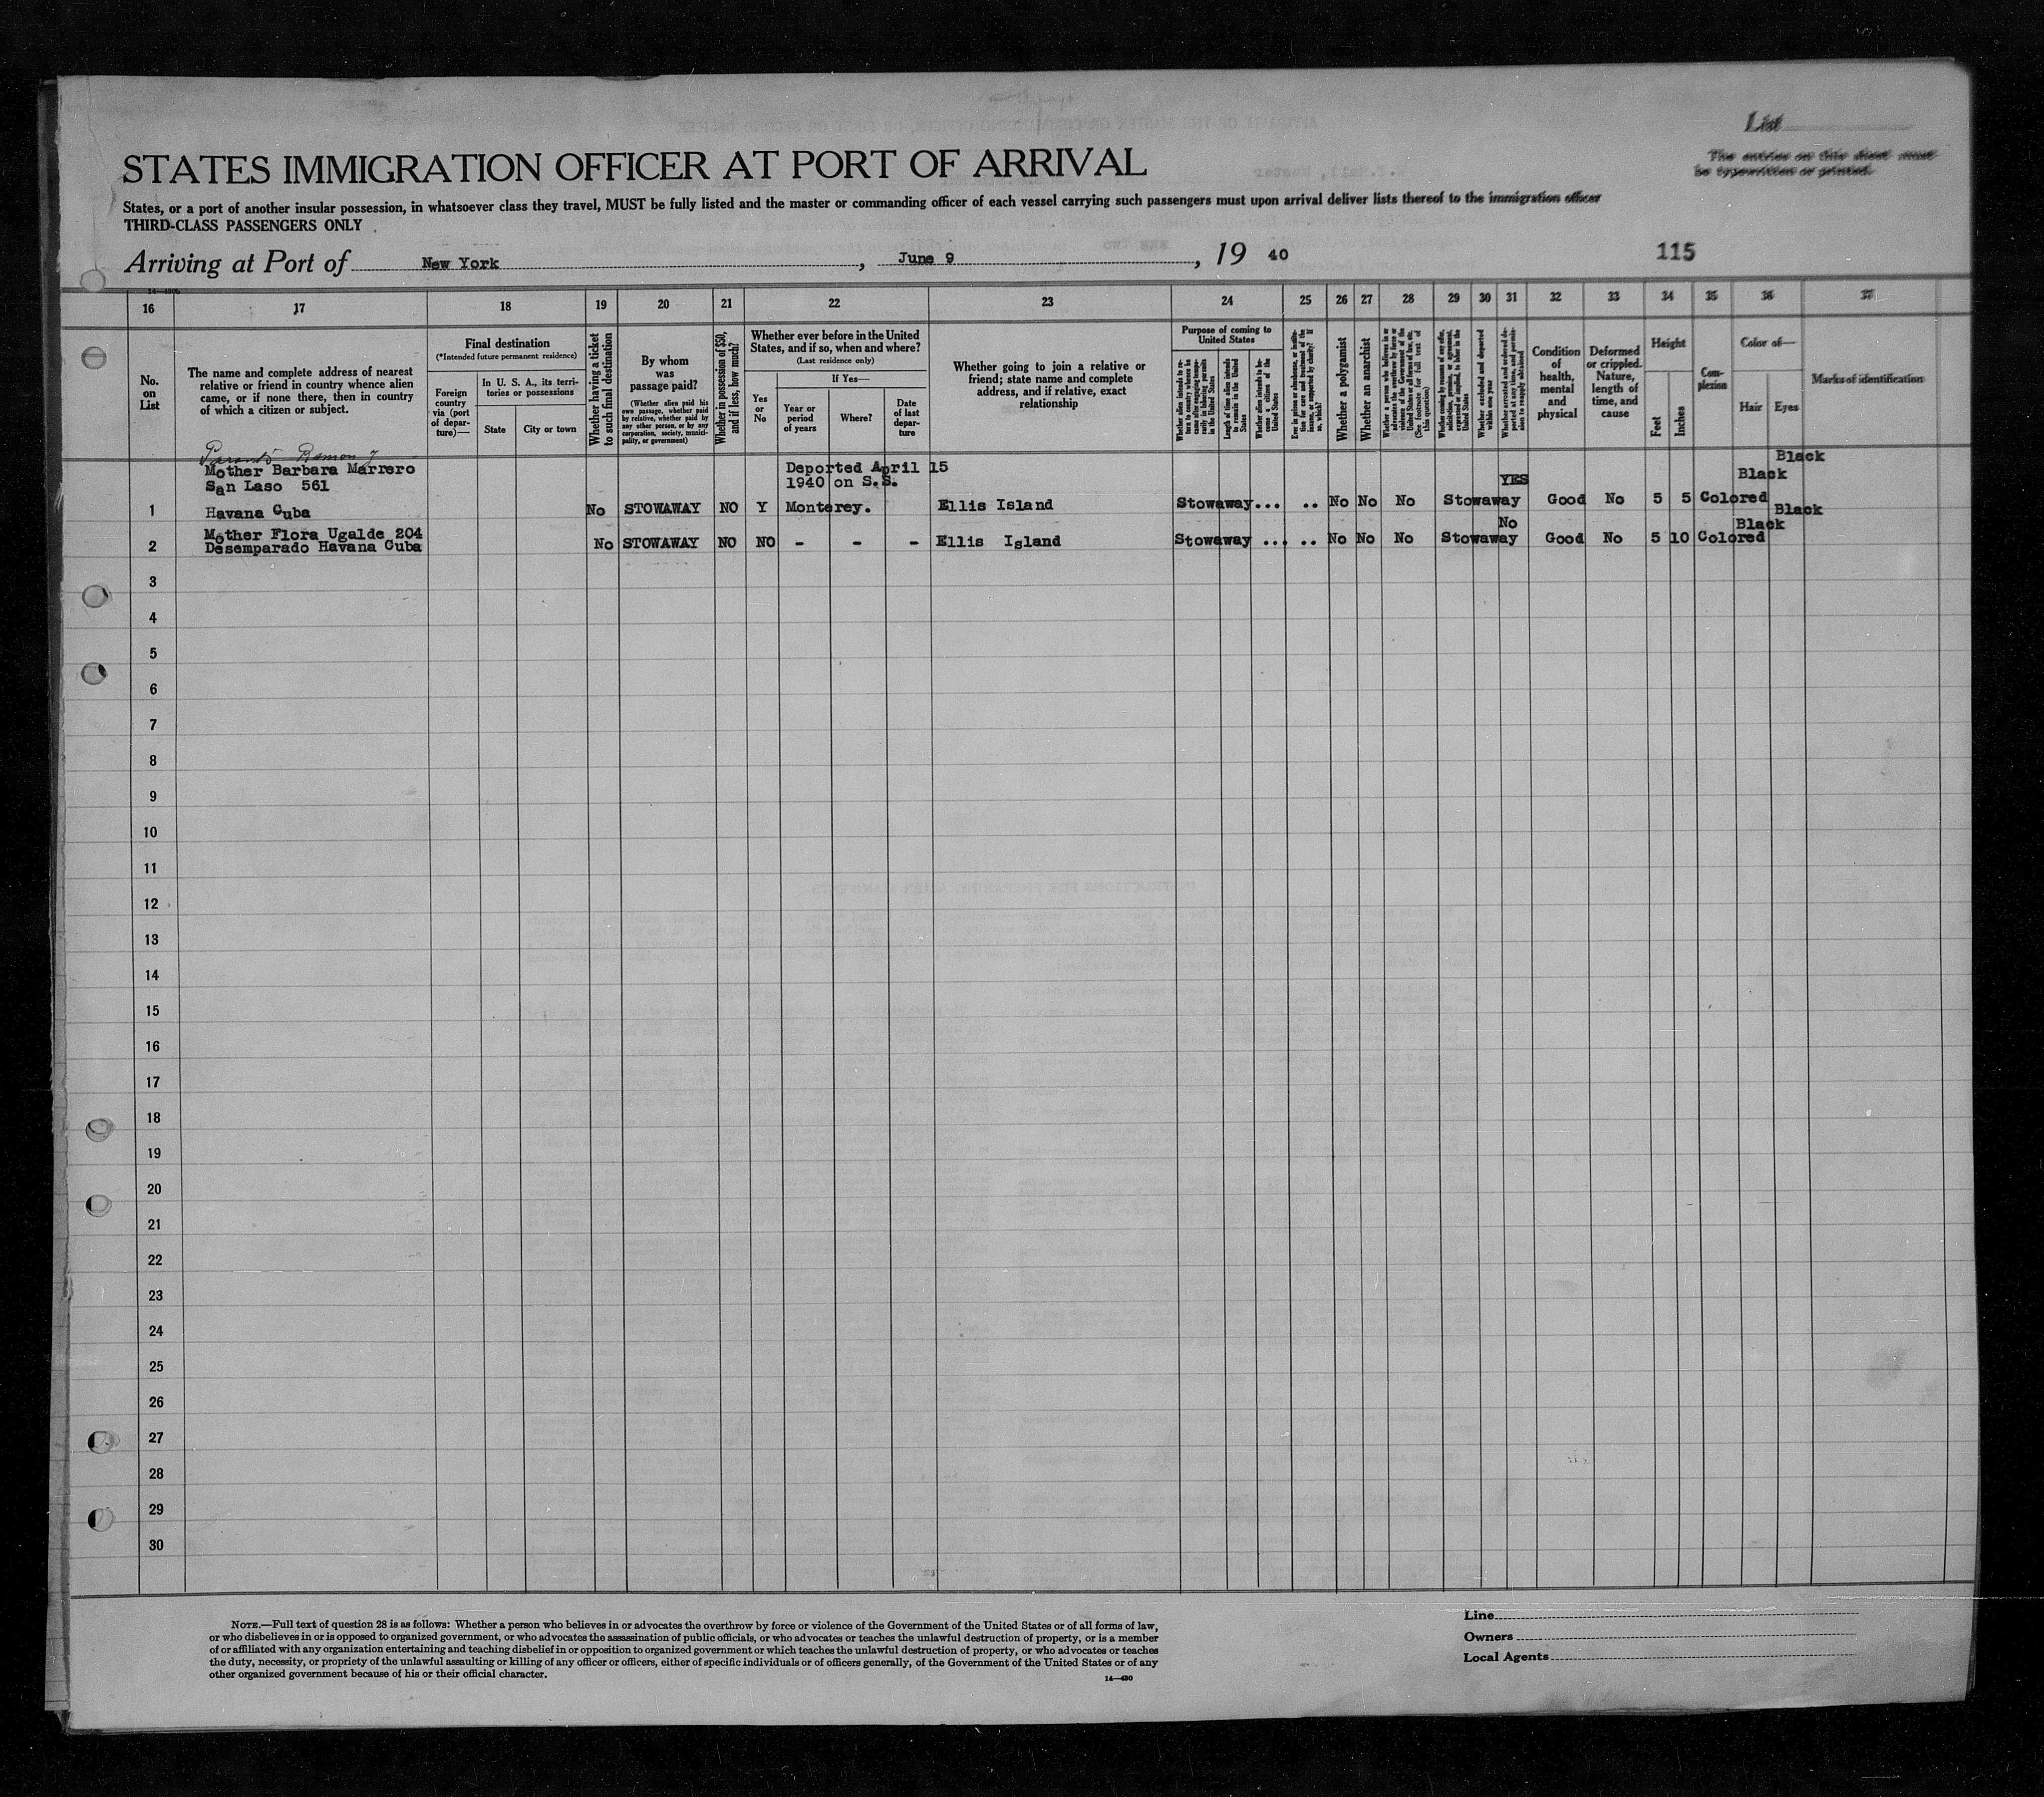 List
STATES IMMIGRATION OFFICER AT PORT OF ARRIVAL
The entries on this sheet must
be typewritten or printed.
States, or a port of another insular possession, in whatsoever class they travel, MUST be fully listed and the master or commanding officer of each vessel carrying such passengers must upon arrival deliver lists thereof to the immigration officer
THIRD-CLASS PASSENGERS ONLY
Arriving at Port of New York, June 9, 19 40
115
16 17 18 19 20 21 22 23 24 25 26 27 28 29 30 31 32 33 34 35 36 37
No. on List
The name and complete address of nearest
relative or friend in country whence alien
came, or if none there, then in country
of which a citizen or subject.
Final destination
(*Intended future permanent residence)
Foreign country via (port of departure)—
In U. S. A., its territories or possessions
State
City or town
Whether having a ticket to such final destination
By whom was passage paid?
(Whether alien paid his own passage, whether paid by relative, whether paid by any other person, or by any corporation, society, municipality, or government)
Whether in possession of $50, and if less, how much?
Whether ever before in the United
States, and if so, when and where?
(Last residence only)
Yes or No
If Yes—
Year or period of years
Where?
Date of last departure
Whether going to join a relative or
friend; state name and complete
address, and if relative, exact
relationship
Purpose of coming to United States
Length of time alien intends to remain in the United States
Whether alien intends to become a citizen of the United States
Whether a polygamist
Whether an anarchist
(See footnote for full text of this question)
Whether excluded and deported within one year
Condition of health, mental and physical
Deformed or crippled. Nature, length of time, and cause
Height
Feet
Inches
Complexion
Color of—
Hair
Eyes
Marks of identification
Parents Ramon y
Mother Barbara Marrero
San Laso 561
1 Havana Cuba No STOWAWAY NO Y Deported April 15
1940 on S.S.
Monterey. Ellis Island Stowaway... .. No No No Stowaway YES Good No 5 5 Colored Black Black
Mother Flora Ugalde 204
2 Desemparado Havana Cuba No STOWAWAY NO NO - - - Ellis Island Stowaway ... .. No No No Stowaway No Good No 5 10 Colored Black Black
3
4
5
6
7
8
9
10
11
12
13
14
15
16
17
18
19
20
21
22
23
24
25
26
27
28
29
30
NOTE.—Full text of question 28 is as follows: Whether a person who believes in or advocates the overthrow by force or violence of the Government of the United States or of all forms of law,
or who disbelieves in or is opposed to organized government, or who advocates the assassination of public officials, or who advocates or teaches the unlawful destruction of property, or is a member
of or affiliated with any organization entertaining and teaching disbelief in or opposition to organized government or which teaches the unlawful destruction of property, or who advocates or teaches
the duty, necessity, or propriety of the unlawful assaulting or killing of any officer or officers, either of specific individuals or of officers generally, of the Government of the United States or of any
other organized government because of his or their official character.
14—430
Line
Owners
Local Agents